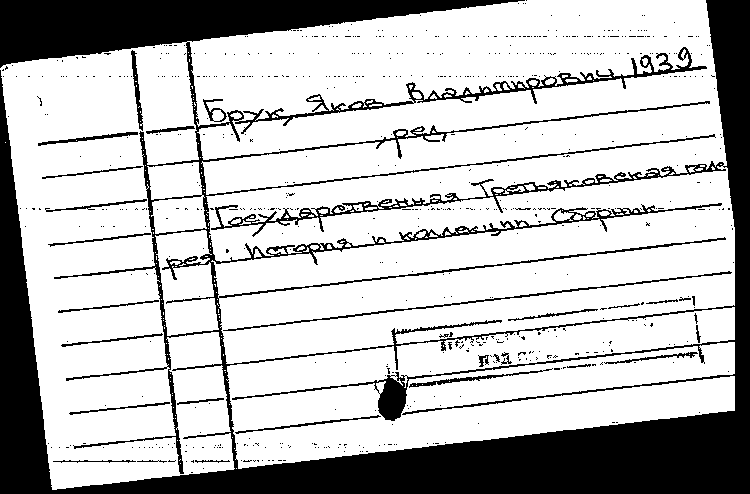 Брук, Яков Владимирович, 1939
, ред.
Государственная Третьяковская гале
рея: История и коллекции: Сборник
под